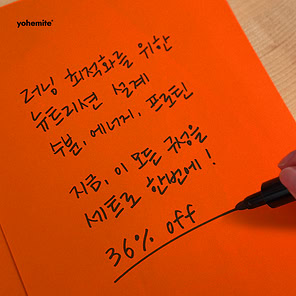 yohemite
러닝 최적화를 위한
뉴트리션 설계
수분, 에너지, 프로틴
지금, 이 모든 구성을
세트로 한번에!
36% off